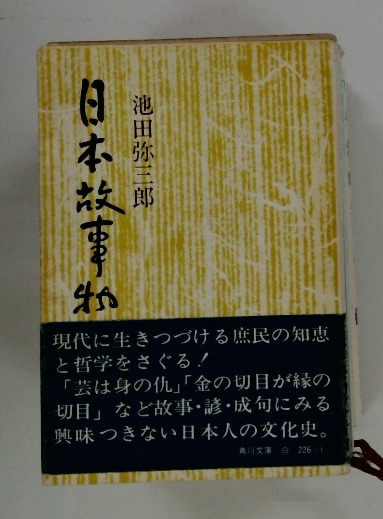 日本故事物
池田弥三郎
現代に生きつづける庶民の知恵
と哲学をさぐる!
「芸は身の仇」「金の切目が縁の
切目」など故事・諺・成句にみる
興味つきない日本人の文化史。
角川文庫 白 226-1